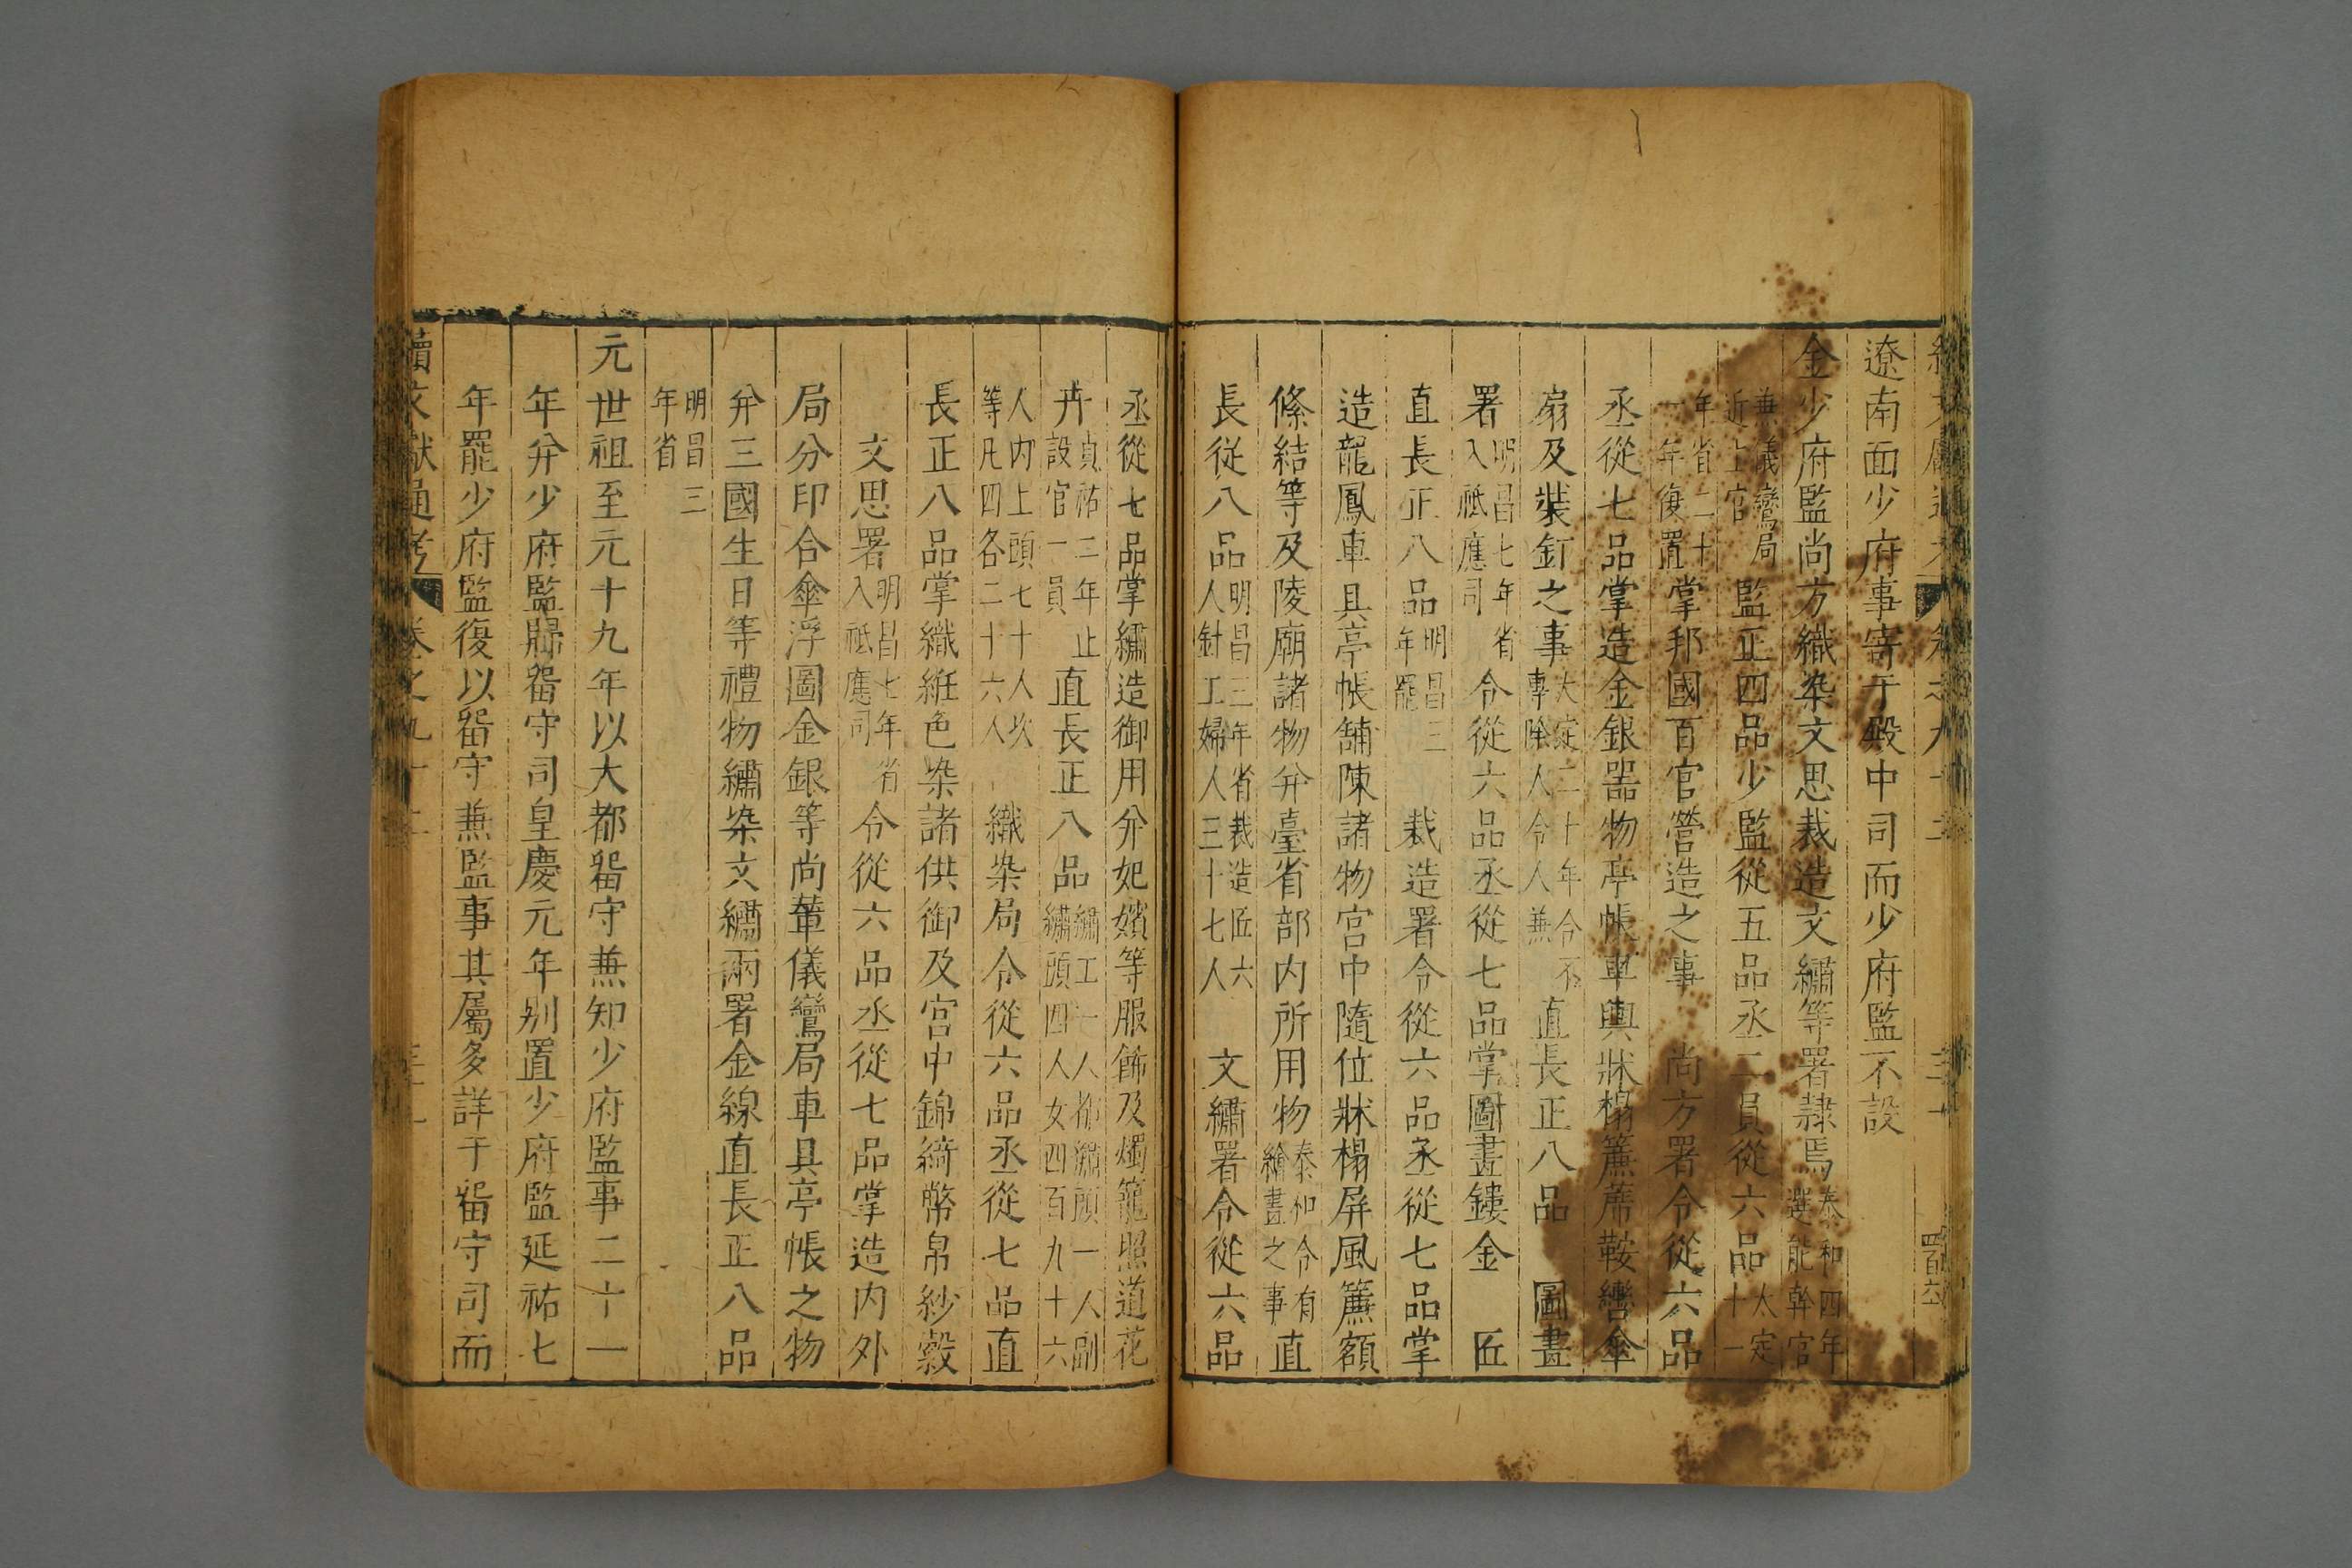 遼南面少府事寄于殿中司而少府監不設
金少府監尚方織染文思裁造文繡等署隸焉泰和四年選能幹官
兼儀鸞局近上官監正四品少監從五品丞二員從六品大定十一
年省二十一年復置掌邦國百官營造之事 尚方署令從六品
丞從七品掌造金銀器物亭帳車輿牀榻簾蓆鞍轡傘
扇及裝釘之事大定二十年令不專除人令人兼直長正八品 圖畫
署明昌七年省入祗應司令從六品丞從七品掌圖畫鏤金 匠
直長正八品明昌三年罷 裁造署令從六品丞從七品掌
造龍鳳車具亭帳舖陳諸物宮中隨位牀榻屏風簾額
絛結等及陵廟諸物并臺省部內所用物泰和令有繪畫之事直
長從八品明昌三年省裁造匠六人針工婦人三十七人 文繡署令從六品
丞從七品掌繡造御用并妃嬪等服飾及燭籠照道花
卉貞祐三年止設官一員直長正八品繡工一人都繡頭一人副繡頭四人女四百九十六
人內上頭七十人次等凡四各二十六人 織染局令從六品丞從七品直
長正八品掌織絍色染諸供御及宮中錦綺幣帛紗縠
文思署明昌七年省入祗應司令從六品丞從七品掌造內外
局分印合傘浮圖金銀等尚輦儀鸞局車具亭帳之物
并三國生日等禮物繡染文繡兩署金線直長正八品
明昌三年省
元世祖至元十九年以大都畱守兼知少府監事二十一
年并少府監歸畱守司皇慶元年別置少府監延祐七
年罷少府監復以畱守兼監事其屬多詳于畱守司而
續文獻通考 卷之九十二